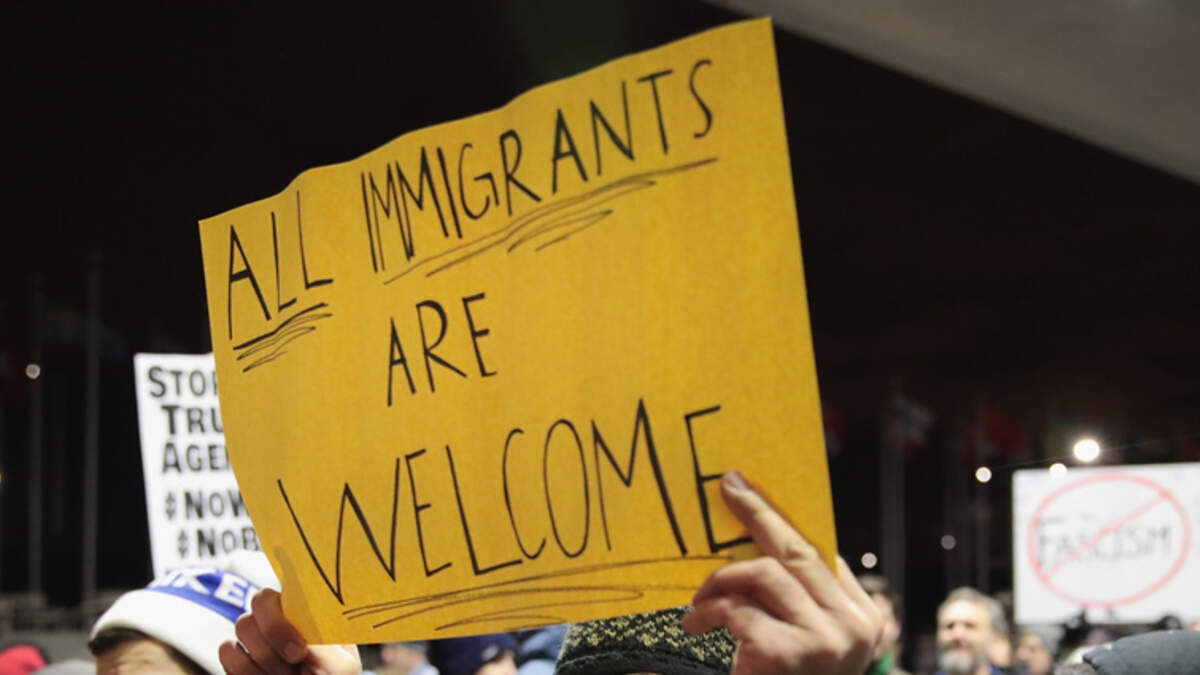 ALL IMMIGRANTS
ARE
WELCOME
STOP
TRU
AGEN
#NOW
#NOB
FASCISM